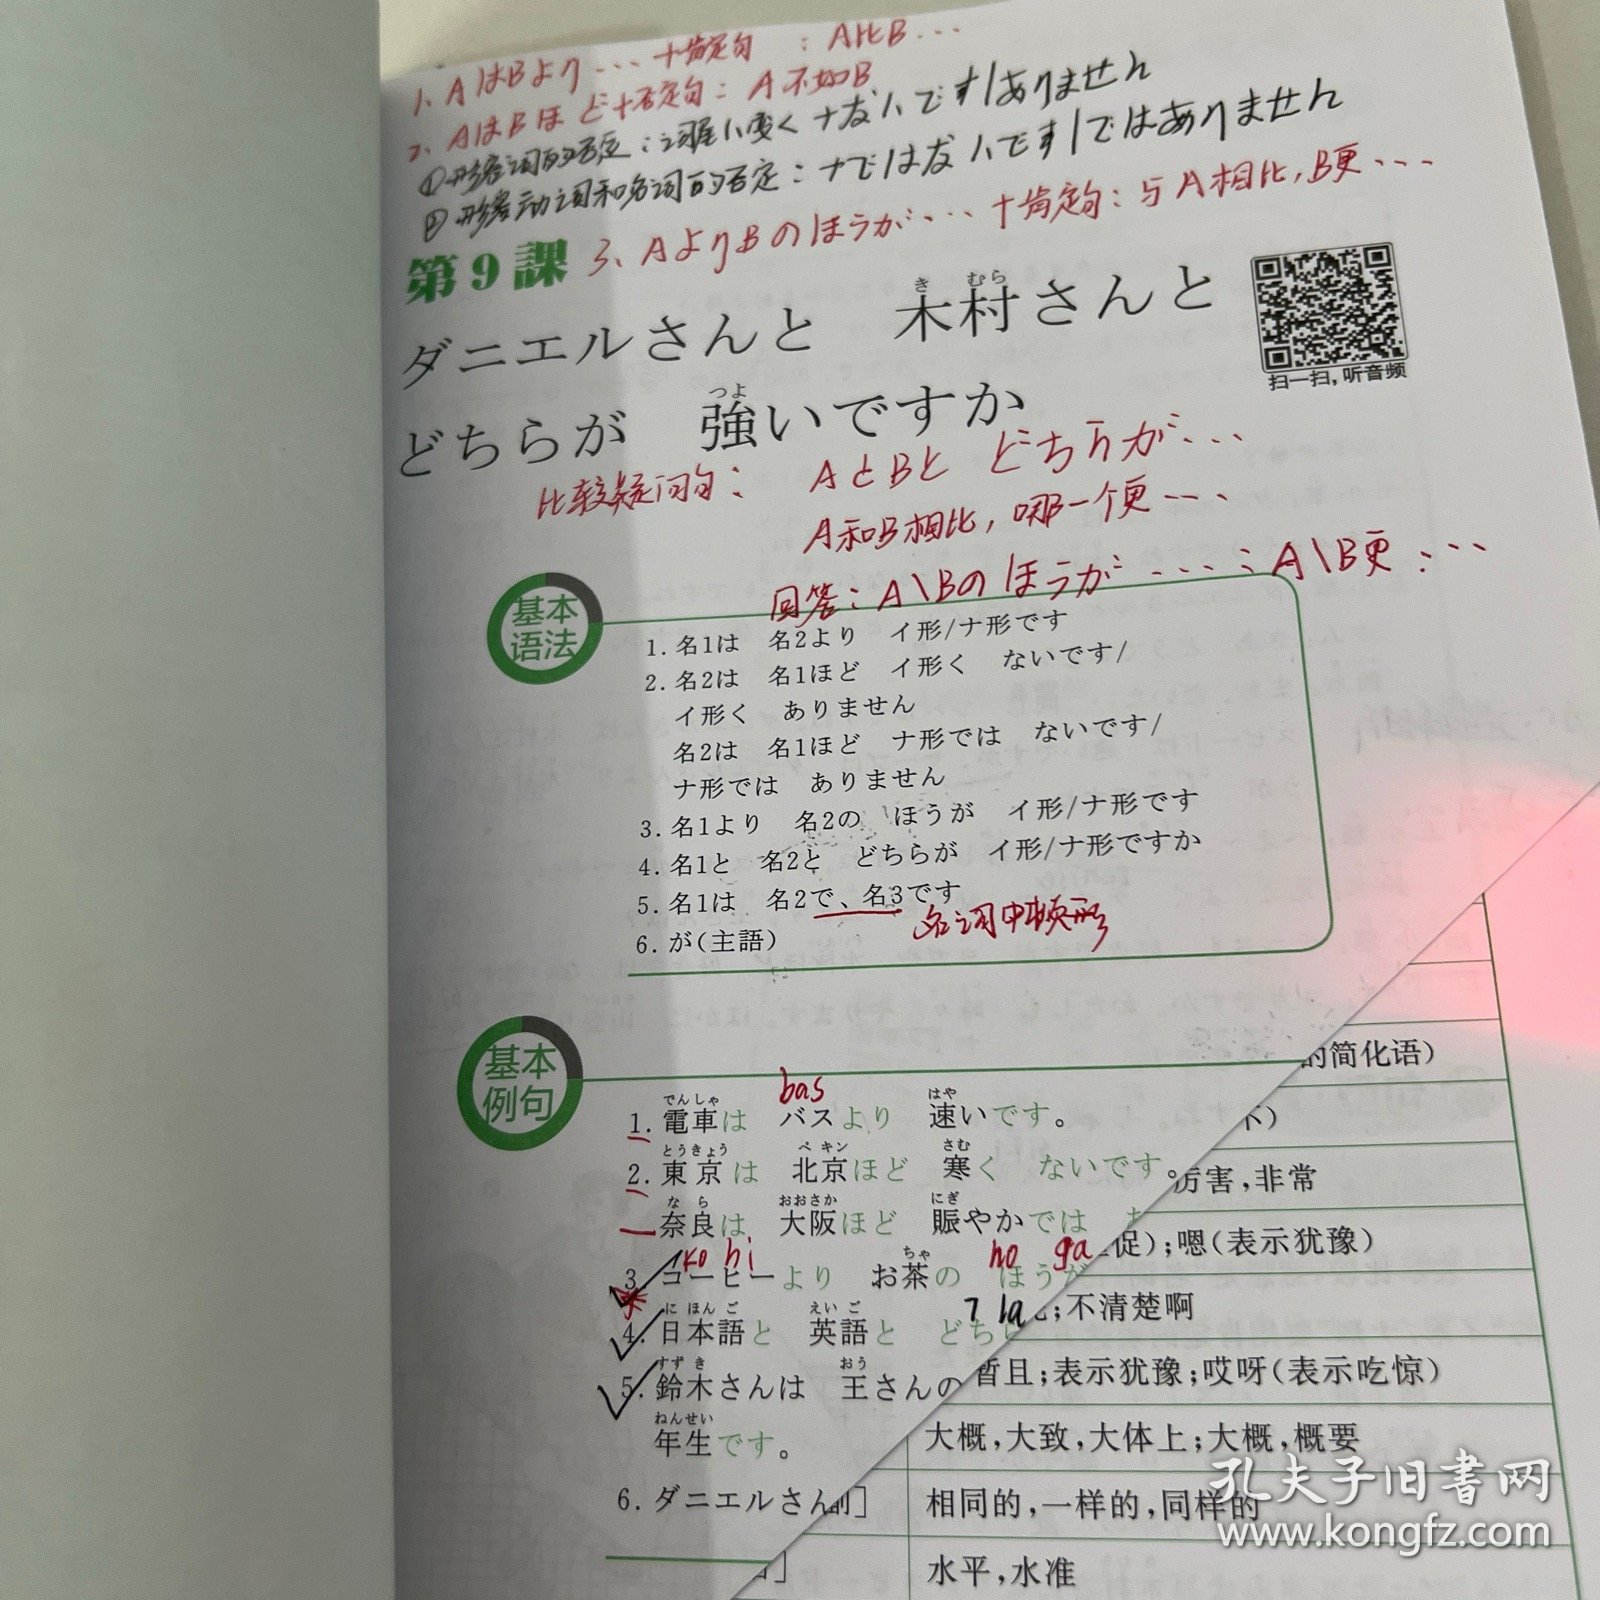 1、AはBより...+肯定句 : A比B...
2、AはBほど+否定句: A不如B
①形容词的否定:词尾い变く+ないです|ありません
②形容动词和名词的否定:+ではないです|ではありません
第9課 3、AよりBのほうが...+肯定句:与A相比,B更...
ダニエルさんと 木村さんと
き むら
扫一扫,听音频
どちらが 強いですか
つよ
比较疑问句: AとBと どちらが...
A和B相比,哪一个更...
回答:A\BのほうがA...:A\B更:...
基本
语法
1. 名1は 名2より イ形/ナ形です
2. 名2は 名1ほど イ形く ないです/
イ形く ありません
名2は 名1ほど ナ形では ないです/
ナ形では ありません
3. 名1より 名2の ほうが イ形/ナ形です
4. 名1と 名2と どちらが イ形/ナ形ですか
5. 名1は 名2で、名3です
名词中顿形
6. が(主語)
基本
例句
bas
でんしゃ はや
1. 電車は バスより 速いです。
とうきょう ペキン さむ
2. 東京は 北京ほど 寒く ないです。
なら おおさか にぎ
奈良は 大阪ほど 賑やかでは
ko hi ちゃ ho ga
3. コーヒーより お茶の ほうが
にほんご えいご
4. 日本語と 英語と どちら
すずき おう
5. 鈴木さんは 王さんの
ねんせい
年生です。
6. ダニエルさん
的简化语)
下)
厉害,非常
促);嗯(表示犹豫)
;不清楚啊
暂且;表示犹豫;哎呀(表示吃惊)
大概,大致,大体上;大概,概要
副] 相同的,一样的,同样的
水平,水准
孔夫子旧书网
www.kongfz.com